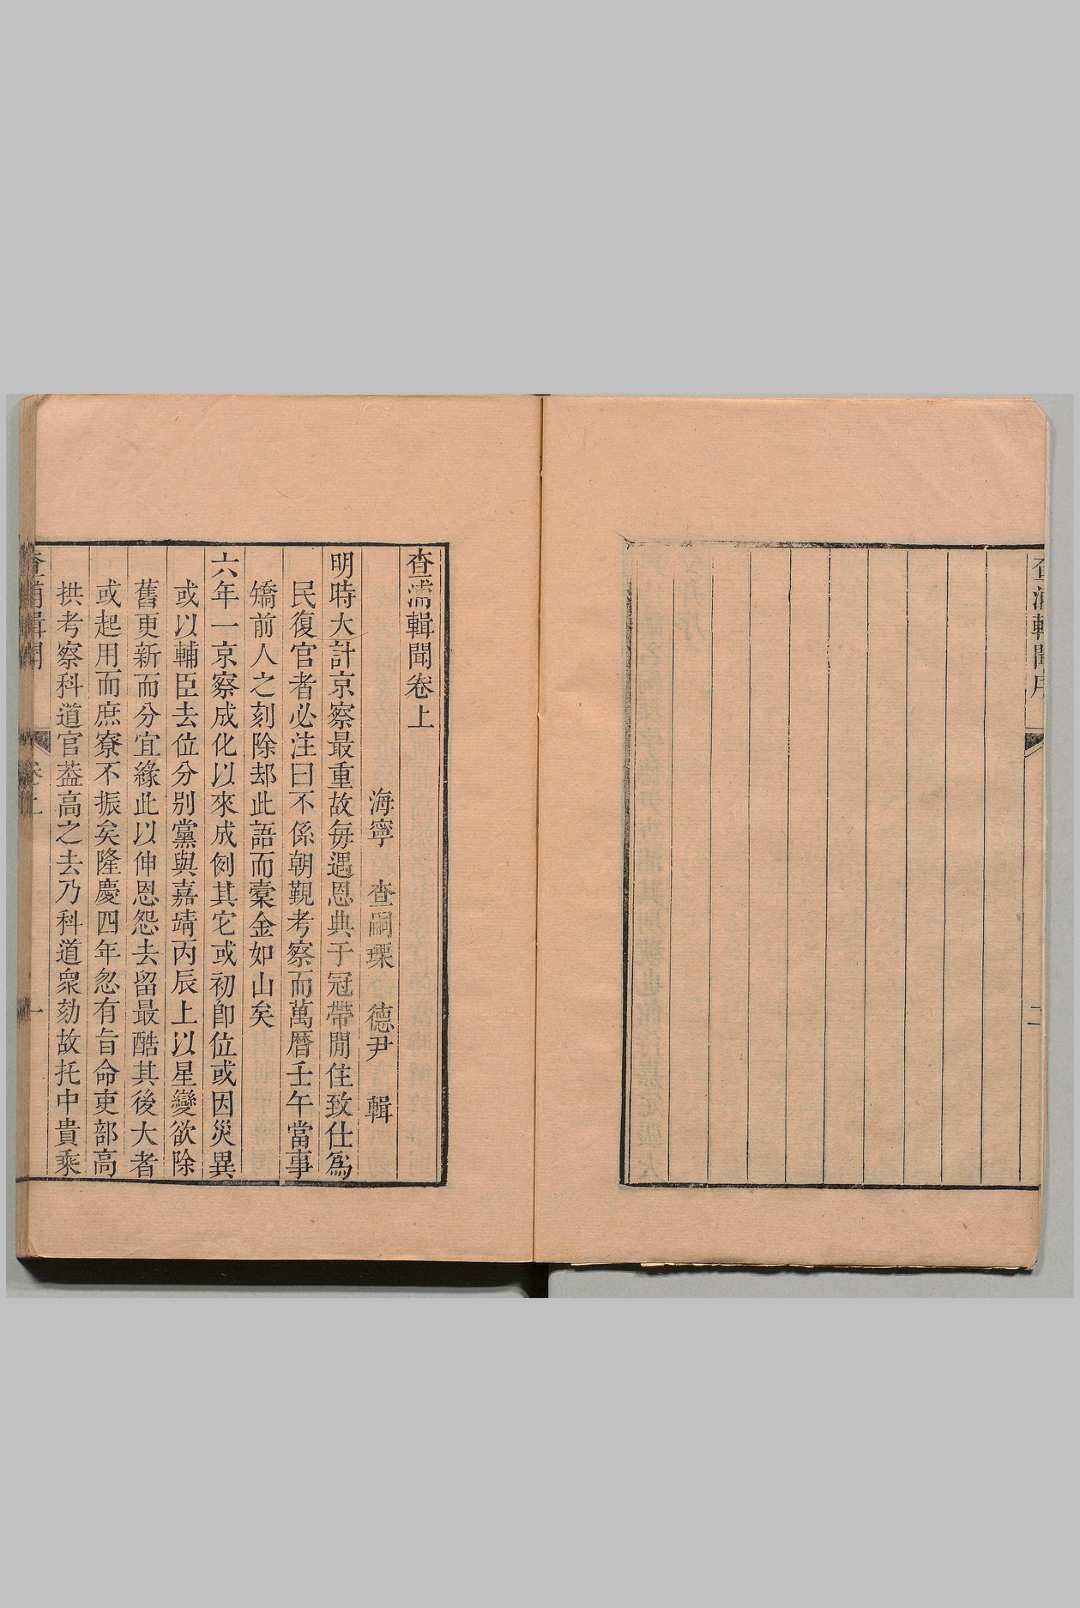 查浦輯聞序
二
查浦輯聞卷上
海寧 查嗣瑮 德尹 輯
明時大計京察最重故每遇恩典于冠帶閒住致仕為
民復官者必注曰不係朝覲考察而萬曆壬午當事
矯前人之刻除却此語而橐金如山矣
六年一京察成化以來成例其它或初卽位或因災異
或以輔臣去位分別黨與嘉靖丙辰上以星變欲除
舊更新而分宜緣此以伸恩怨去留最酷其後大者
或起用而庶寮不振矣隆慶四年忽有旨命吏部高
拱考察科道官葢高之去乃科道衆劾故托中貴乘
查浦輯聞
卷上
一